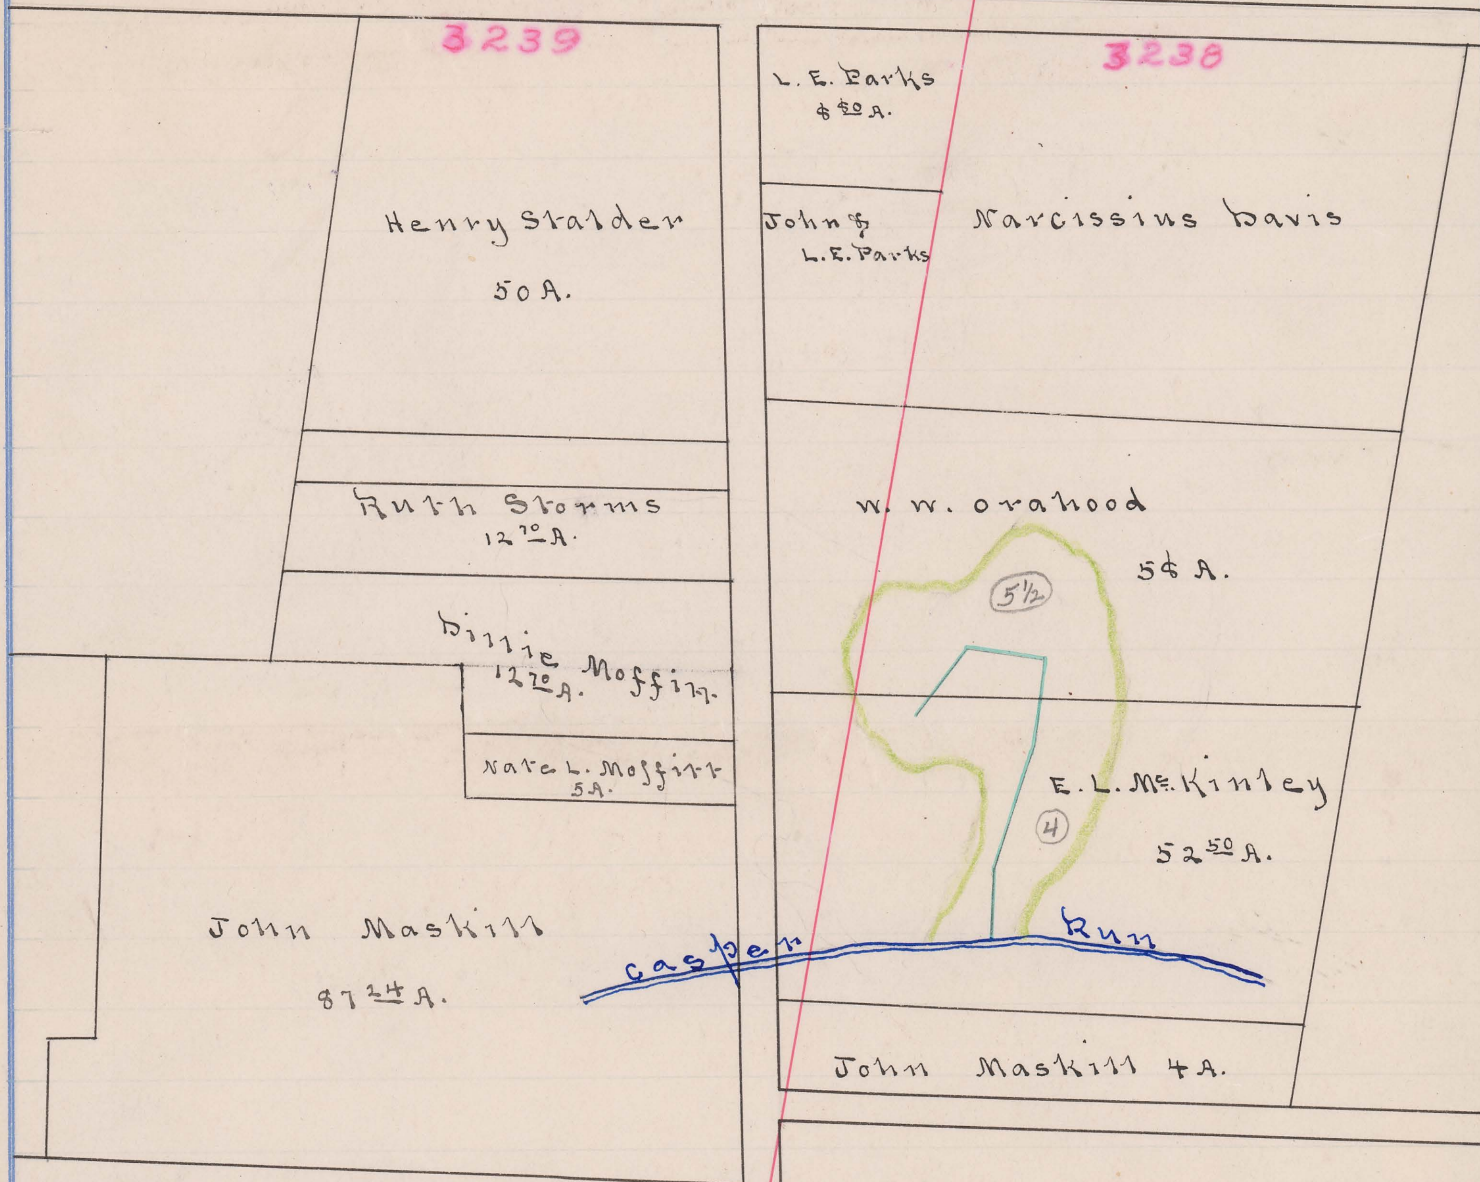 3239
3238
L. E. Parks
Henry Stalder
50 A.
John &
L.E. Parks
Narcissius Davis
Ruth Storms
12 70 A.
W. W. Orahood
A.
5 1/2
Dillie Moffitt
12 70 A.
Nate L. Moffitt
5 A.
E. L. Mc. Kinley
52 50 A.
4
John Maskill
87 24 A.
Casper Run
John Maskill 4 A.